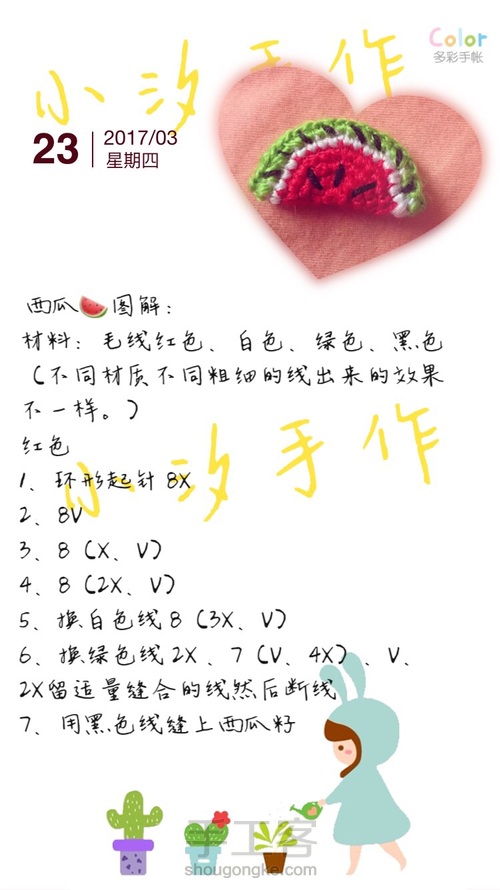 Color
多彩手帐
小汐手作
23
2017/03
星期四
西瓜🍉图解：
材料：毛线红色、白色、绿色、黑色
（不同材质不同粗细的线出来的效果
不一样。）
小汐手作
红色
1、环形起针8X
2、8V
3、8（X、V）
4、8（2X、V）
5、换白色线8（3X、V）
6、换绿色线2X、7（V、4X）、V、
2X留适量缝合的线然后断线
7、用黑色线缝上西瓜籽
手工客
shougongke.com